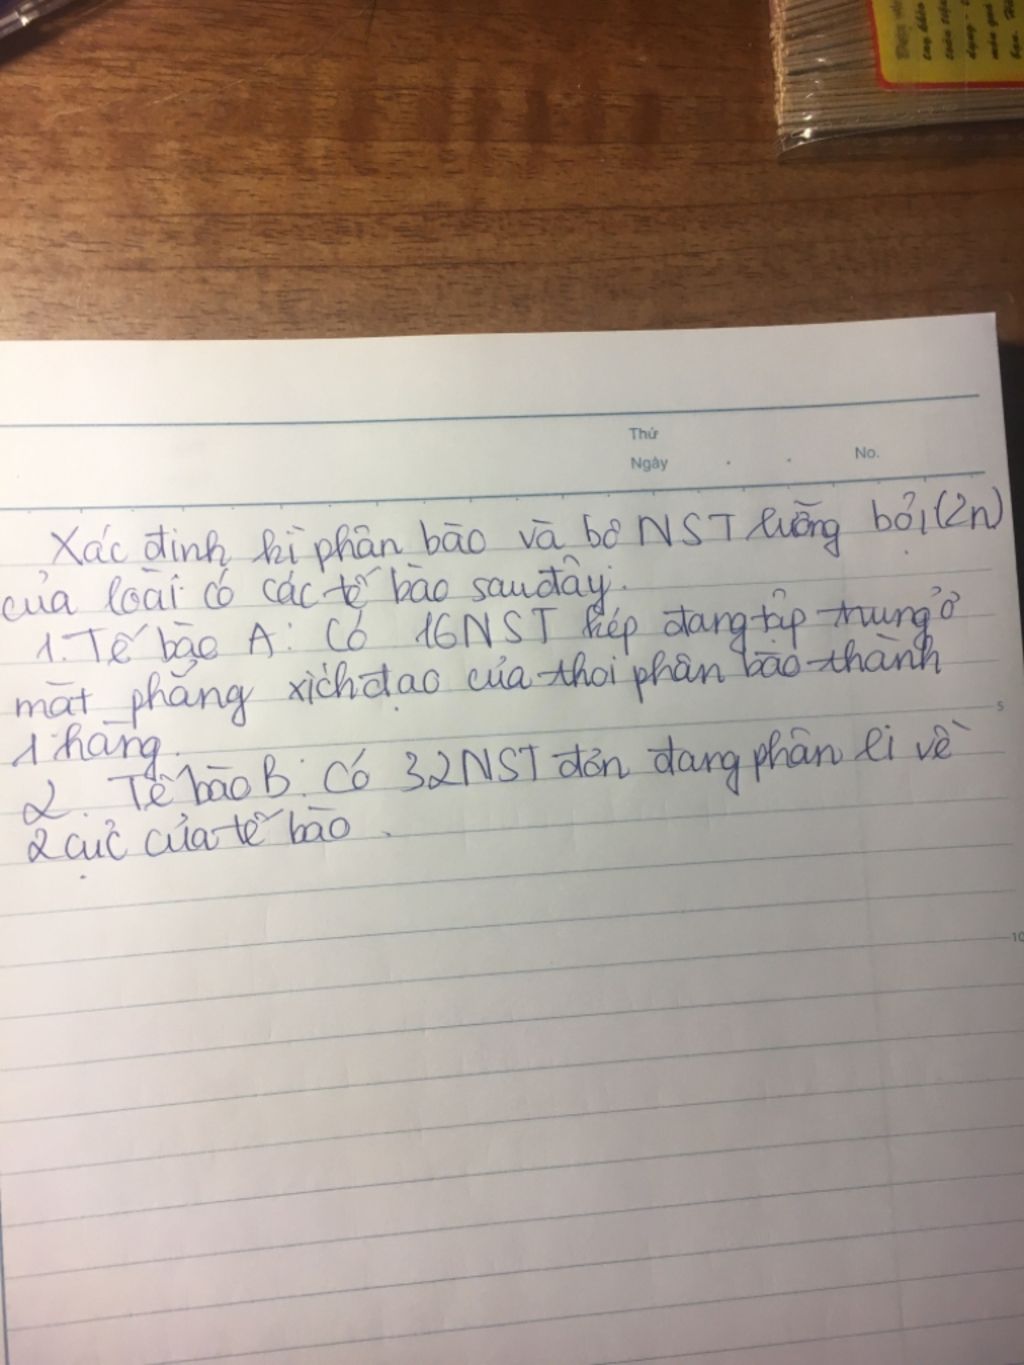 Thứ
Ngày
No.
Xác định kì phân bào và bộ NST lưỡng bội (2n)
của loài có các tế bào sau đây:
1. Tế bào A: Có 16 NST kép đang tập trung ở
mặt phẳng xích đạo của thoi phân bào thành
1 hàng.
2. Tế bào B: Có 32 NST đơn đang phân li về
2 cực của tế bào.
5
10